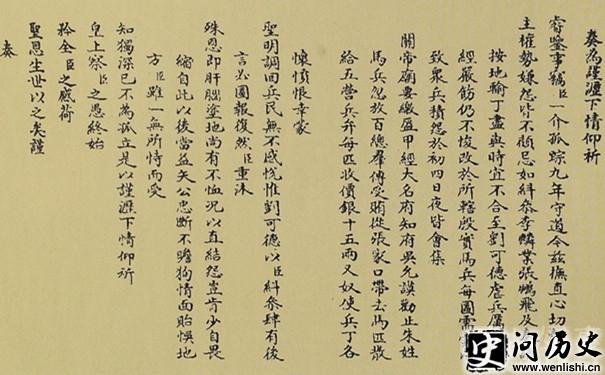 奏為謹瀝下情仰祈
睿鑒事竊臣一介孤踪九年守道今茲撫直心切
主權勢嫌怨皆不顧忌如糾參李麟業張鵬飛及
按地輪丁盡與時宜不合至劉可德虐兵厲
經嚴飭仍不悛改於所轄殷實馬兵每圖需
致衆兵積怨於初四日夜皆會集
關帝廟要繳盔甲經大名府知府吳允謨勸止朱姓
馬兵忽放百總羣傳受賄從張家口帶去馬匹散
給五營兵弁每匹收價銀十五兩又奴使兵丁各
懷憤恨幸蒙
聖明調回兵民無不感悅惟劉可德以臣糾參肆有後
言必圖報復然臣重沐
殊恩即肝腦塗地尚有不恤況以直結怨豈肯少自畏
縮自此以後當益矢公忠斷不瞻狥情面貽悞地
方臣雖一無所恃而受
知獨深已不為孤立是以謹瀝下情仰祈
皇上察臣之愚終始
矜全臣之感荷
聖恩生世以之矣謹
奏
史 问历史
www.wenlishi.cn